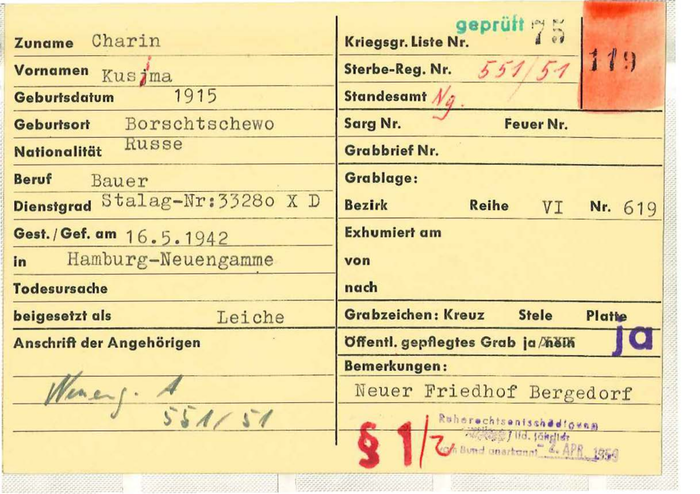 Zuname Charin
Vornamen Kusjma
Geburtsdatum 1915
Geburtsort Borschtschewo
Nationalität Russe
Beruf Bauer
Dienstgrad Stalag-Nr:33280 X D
Gest./Gef. am 16.5.1942
in Hamburg-Neuengamme
Todesursache
beigesetzt als Leiche
Anschrift der Angehörigen
Neueng. A
551/51
geprüft 75
119
Kriegsgr. Liste Nr.
Sterbe-Reg. Nr. 551/51
Standesamt Ng.
Sarg Nr. Feuer Nr.
Grabbrief Nr.
Grablage:
Bezirk Reihe VI Nr. 619
Exhumiert am
von
nach
Grabzeichen: Kreuz Stele Platte
Öffentl. gepflegtes Grab ja nein ja
Bemerkungen:
Neuer Friedhof Bergedorf
§ 1/2
Ruherechtsentschädigung
vom Bund anerkannt APR. 1959